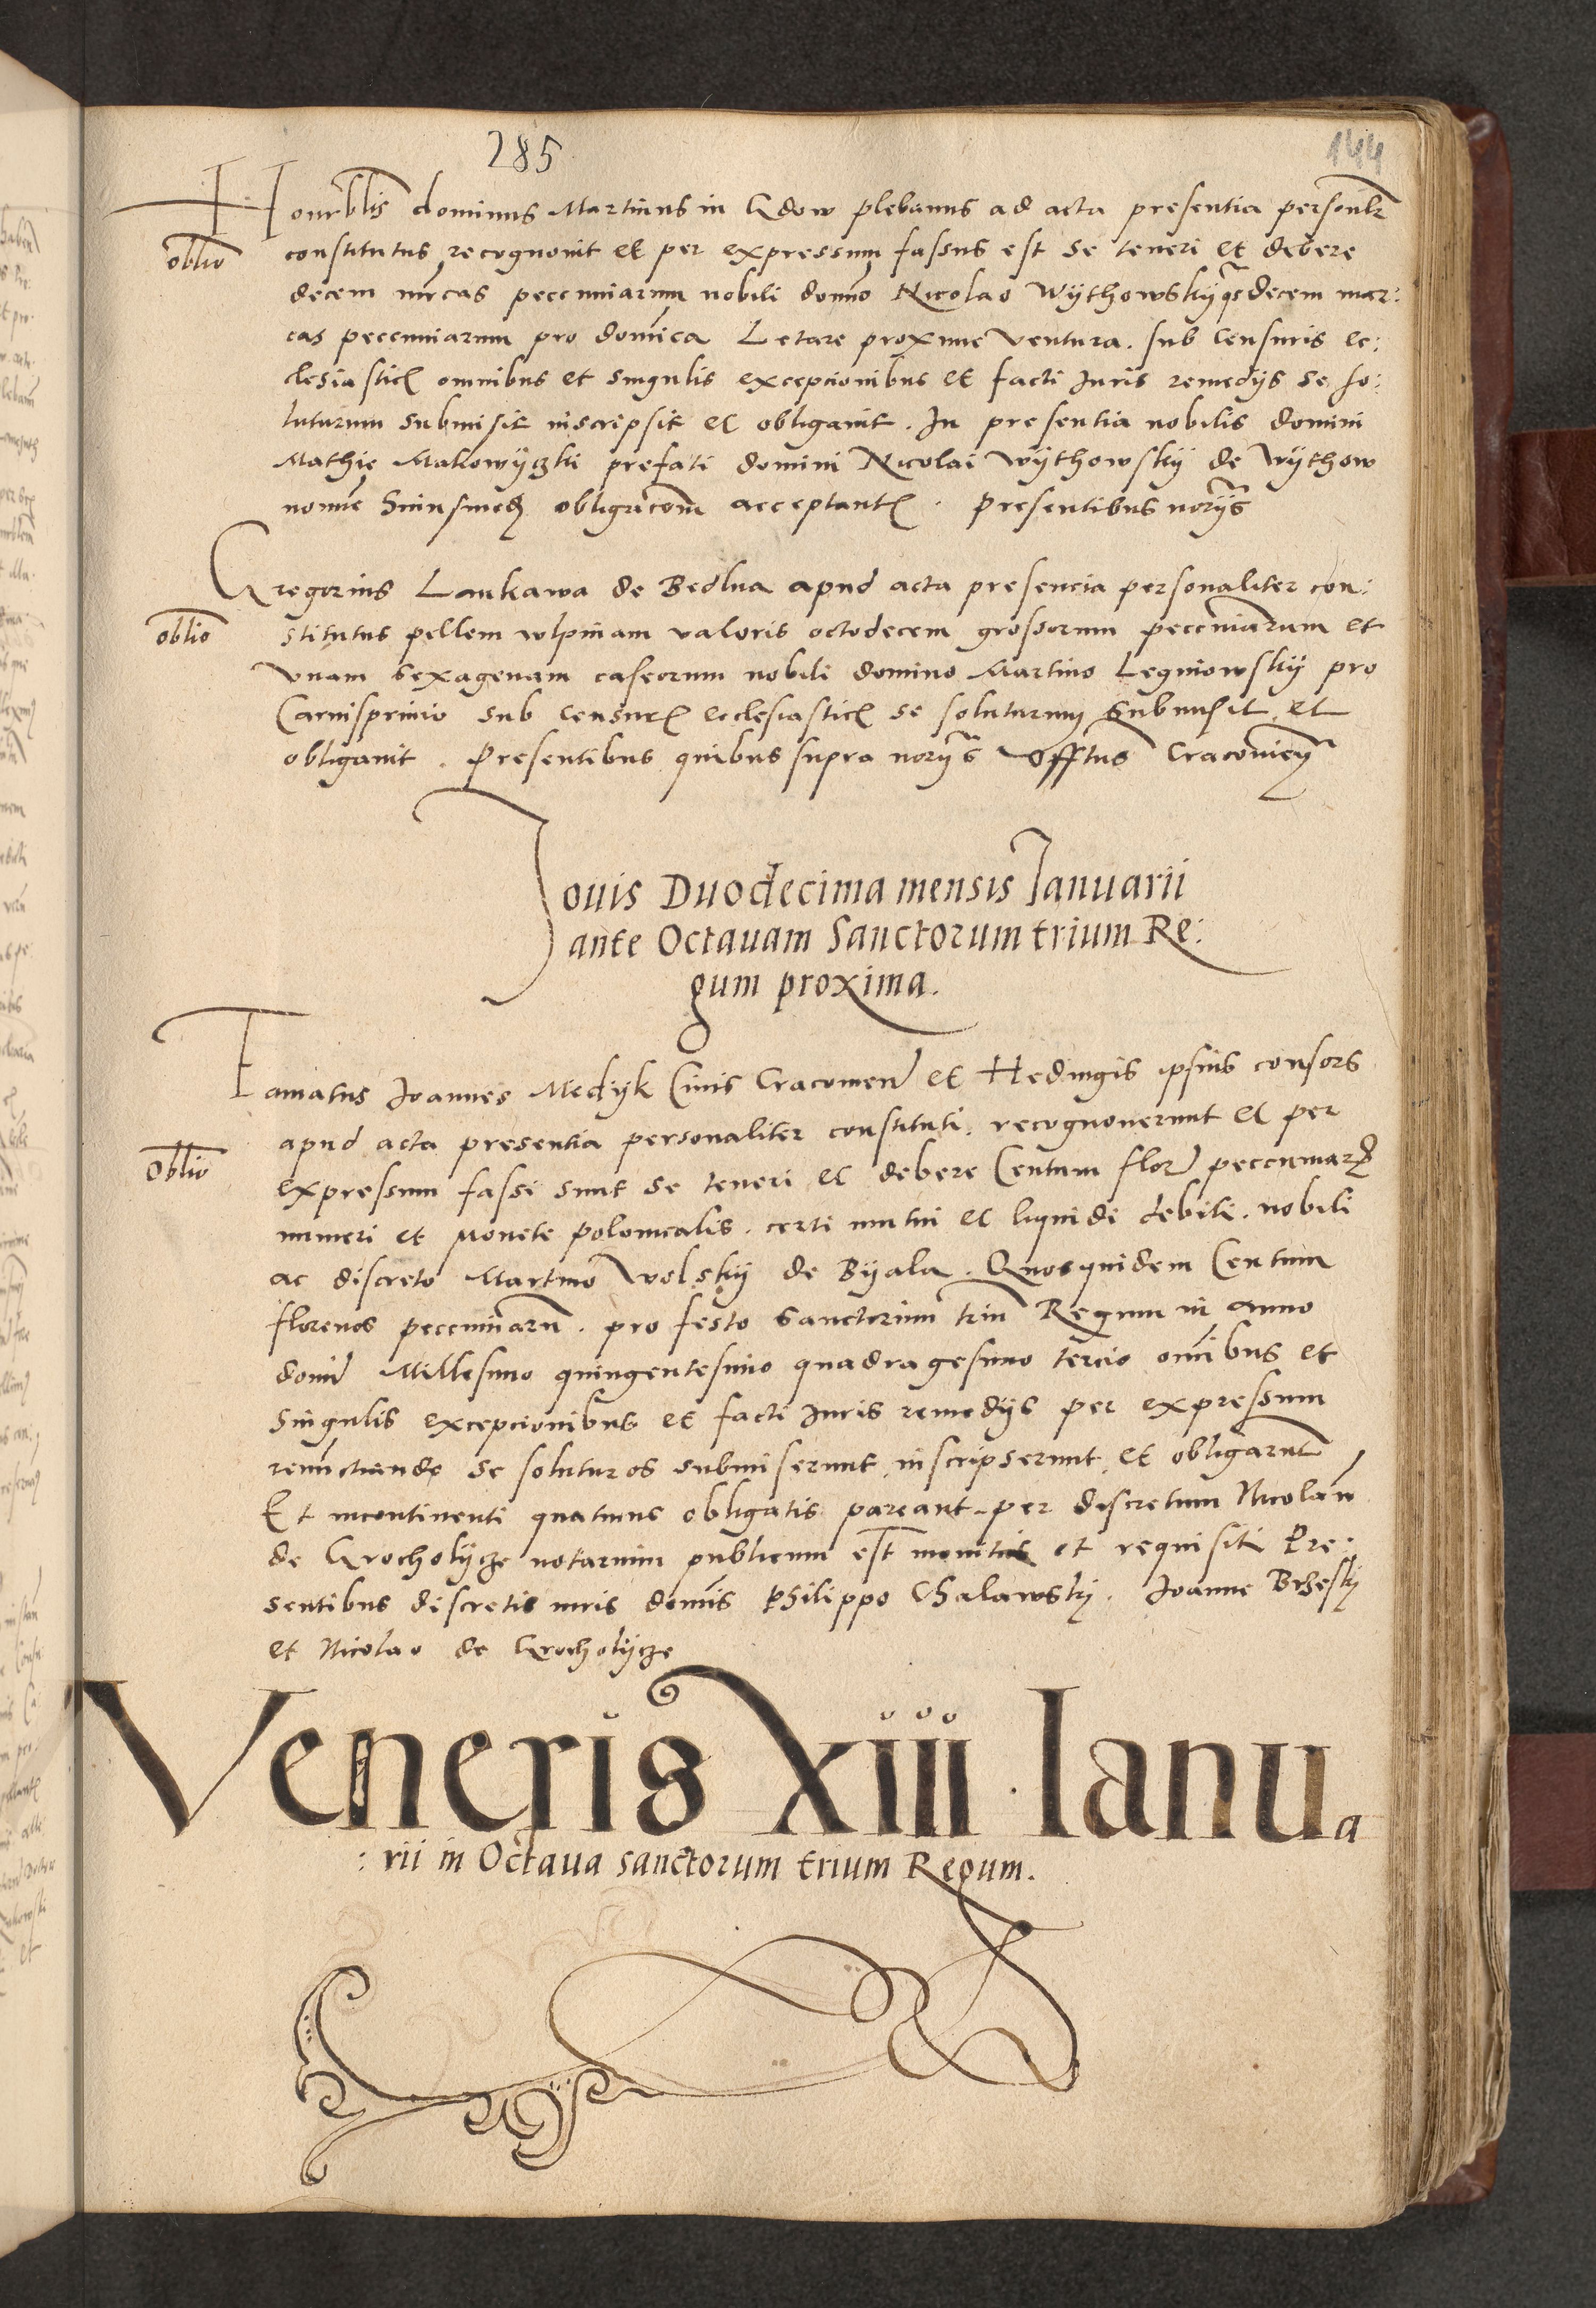 285
144
Honrblis dominus Martinus in Gdow plebanus ad acta presentia personlr
oblio
constitutus recognouit et per expressum fassus est se teneri et debere
decem mrcas peccuniarum nobili domno Nicolao Wythowsky qs decem mar:
cas peccuniarum pro domica Letare proxime ventura. sub censuris ec:
clesiastic omnibus et singulis excepcionibus et facti Iuris remedijs se so:
luturum submisit inscripsit et obligauit. In presentia nobilis domini
Mathie Makowyczki prefati domini Nicolai Wythowsky de Wythow
nomie obligacom acceptant. Presentibus norijs
Gregorius Laukawa de Bedlna apud acta presencia personaliter con:
oblio
stitutus pellem wlpinam valoris octodecem grossorum peccuniarum et
vnam sexagenam caseorum nobili domino Martino Legniowsky pro
Carnispriuio sub censur ecclesiastic se soluturum submisit et
obligauit. Presentibus quibus supra norijs Offtus Cracouien
Iouis Duodecima mensis Ianuarii
ante Octauam Sanctorum trium Re:
gum proxima.
Famatus Joannes Medyk Ciuis Cracouien et Hedwigis ipsius consors
apud acta presentia personaliter constituti. recognouerunt et per
Oblio
expressum fassi sunt se teneri et debere Centum flor peccuniar
numeri et Monete polonicalis. certi mutui et liquidi debiti. nobili
ac discreto Martino Wolsky de Byala. Quosquidem Centum
florenos peccuniaru. pro festo Sanctorum trium Regum in anno
domi Millesimo quingentesimo quadragesimo tercio omibus et
singulis excepcionibus et facti Iuris remedijs per expressum
renunctiando se soluturos submiserunt, inscripserunt, et obligarunt
Et incontinenti quatinus obligatis pareant per discretum Nicolaum
de Grocholycze notarium publicum est moniti et requisiti Pre:
sentibus discretis viris domis Philippo Chalawsky. Joanne Brzesky
et Nicolao de Grocholycze
Veneris Xiii Ianua
:rii in Octaua sanctorum trium Regum.